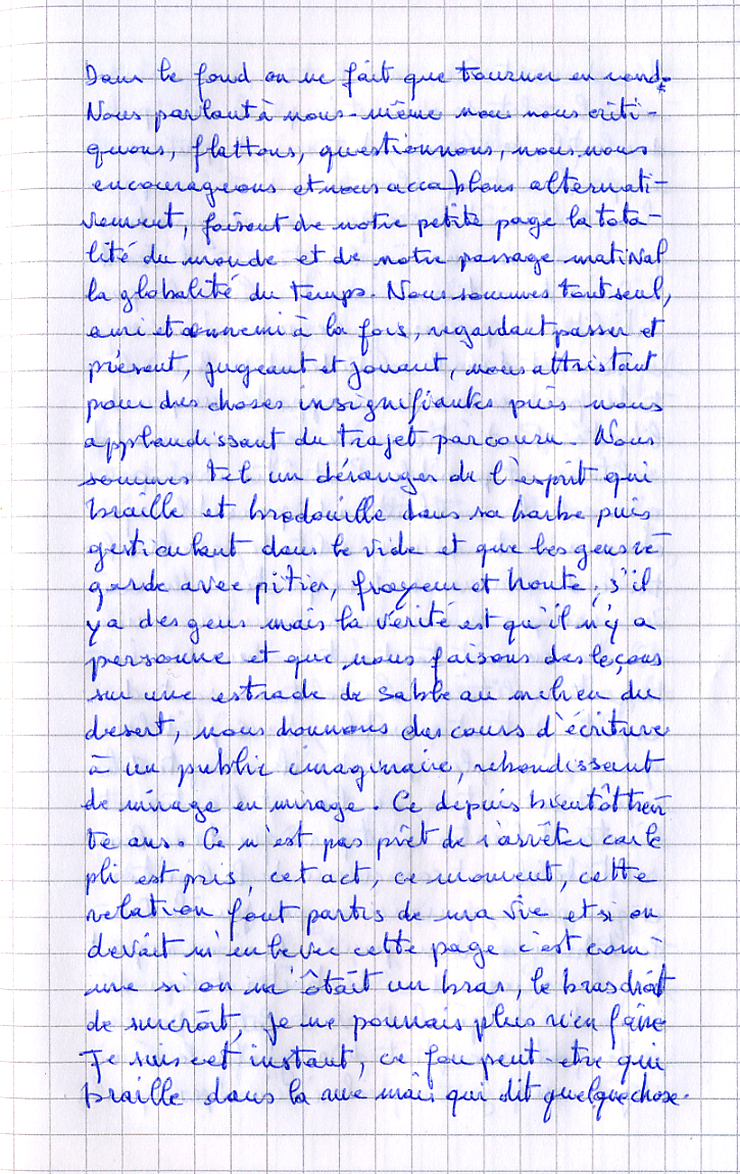 Dans le fond on ne fait que tourner en rond.
Nous parlant à nous-même nous nous criti-
quons, flattons, questionnons, nous nous
encourageons et nous accablons alternati-
vement, faisant de notre petite page la tota-
lité du monde et de notre passage matinal
la globalité du temps. Nous sommes tout seul,
ami et ennemi à la fois, regardant passer et
présent, jugeant et jouant, nous attristant
pour des choses insignifiantes puis nous
applaudissant du trajet parcouru. Nous
sommes tel un déranger de l'esprit qui
braille et bredouille dans sa barbe puis
gesticulant dans le vide et que les gens re-
garde avec pitier, frayeur et honte, s'il
y a des gens mais la vérité est qu'il n'y a
personne et que nous faisons des leçons
sur une estrade de sable au milieu du
desert, nous donnons des cours d'écriture
à un public imaginaire, rebondissant
de mirage en mirage. Ce depuis bientôt tren
te ans. Ce n'est pas prêt de s'arrêter car le
pli est pris, cet act, ce moment, cette
relation font partis de ma vie et si on
devait m'enlever cette page c'est com-
me si on m'ôtait un bras, le bras droit
de surcroît, je ne pourrais plus rien faire
Je suis cet instant, ce fou peut-etre qui
braille dans la rue mais qui dit quelque chose.